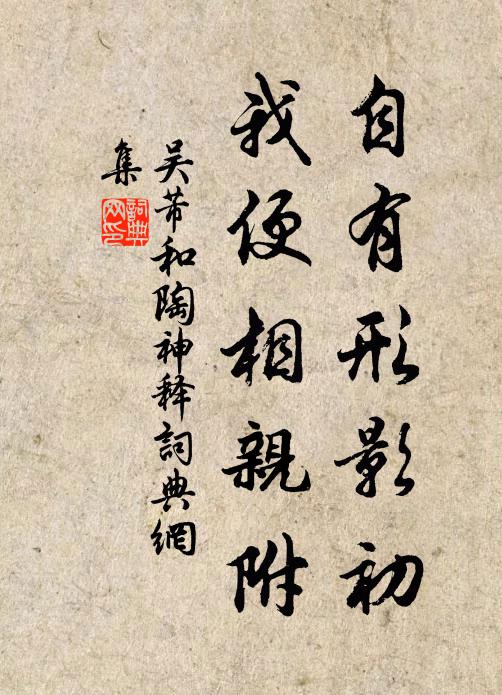 自有形影初
我便相親附
吴芾和陶神释詞典網
集
詞典
网印